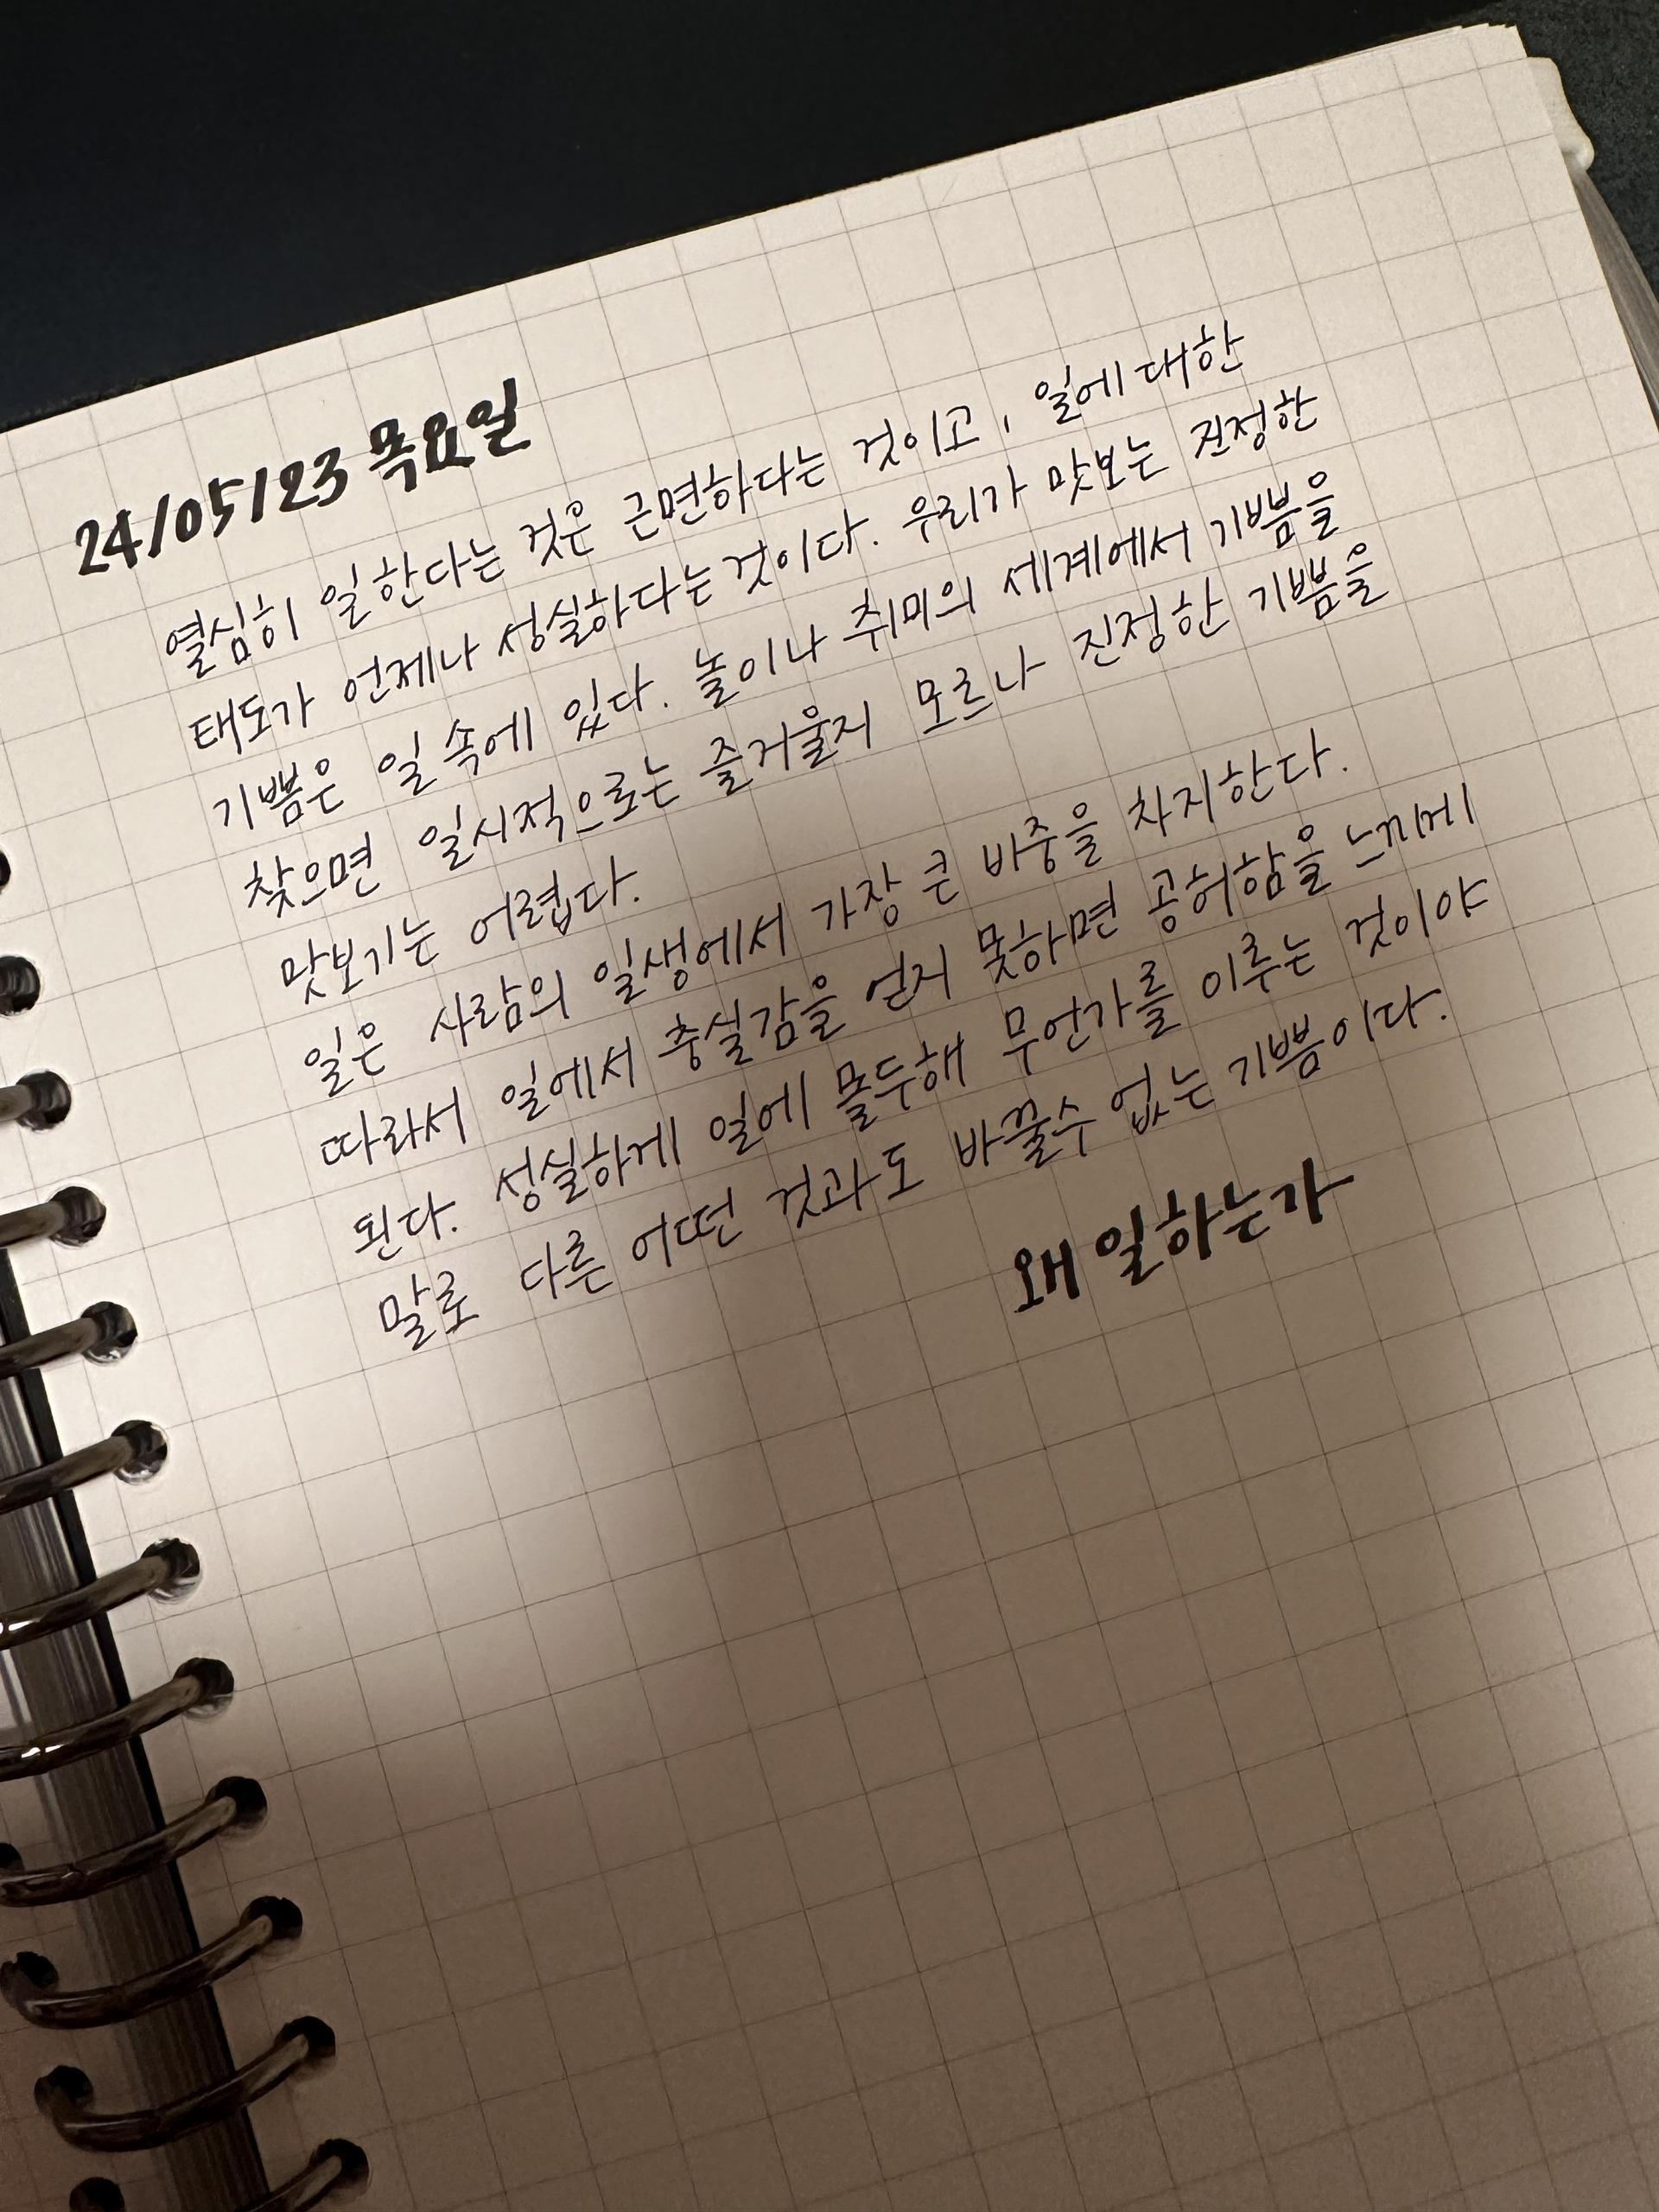 24/05/23 목요일
열심히 일한다는 것은 근면하다는 것이고, 일에 대한
태도가 언제나 성실하다는 것이다. 우리가 맛보는 진정한
기쁨은 일 속에 있다. 놀이나 취미의 세계에서 기쁨을
찾으면 일시적으로는 즐거울지 모르나 진정한 기쁨을
맛보기는 어렵다.
일은 사람의 일생에서 가장 큰 비중을 차지한다.
따라서 일에서 충실감을 얻지 못하면 공허함을 느끼게
된다. 성실하게 일에 몰두해 무언가를 이루는 것이야
말로 다른 어떤 것과도 바꿀수 없는 기쁨이다.
왜 일하는가